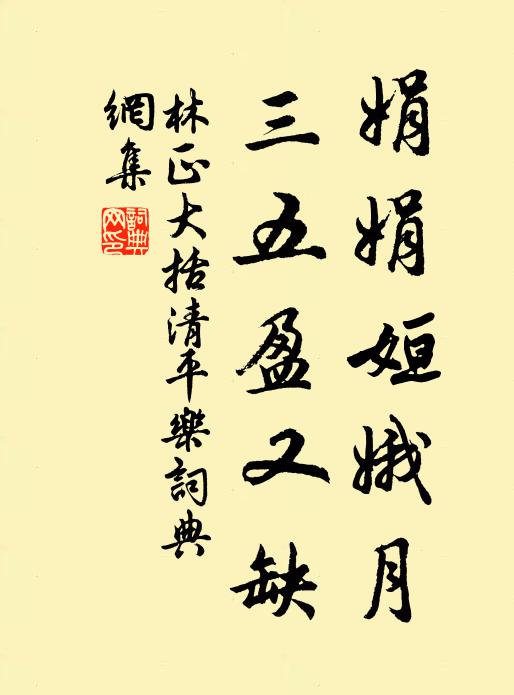 娟娟姮娥月
三五盈又缺
林正大括清平樂詞典
網集
詞典
网印